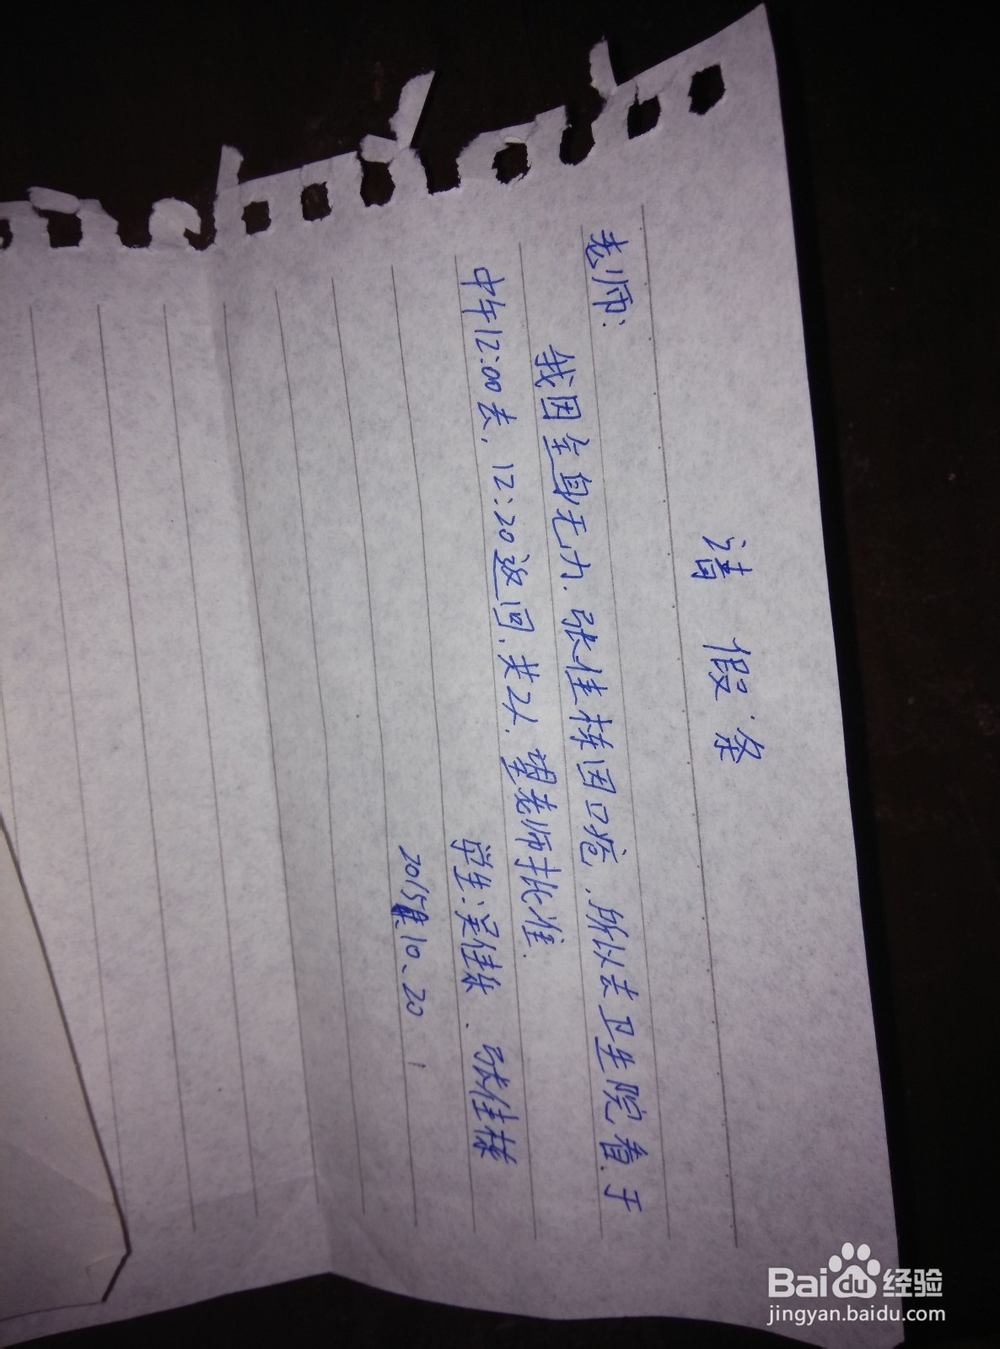 请假条
老师:
我因全身无力.张佳栋因口疮.所以去卫生院看.于
中午12:00去,12:20返回.共2人.望老师批准.
学生:吴佳乐、张佳栋
2015年10、20
Baidu经验
jingyan.baidu.com